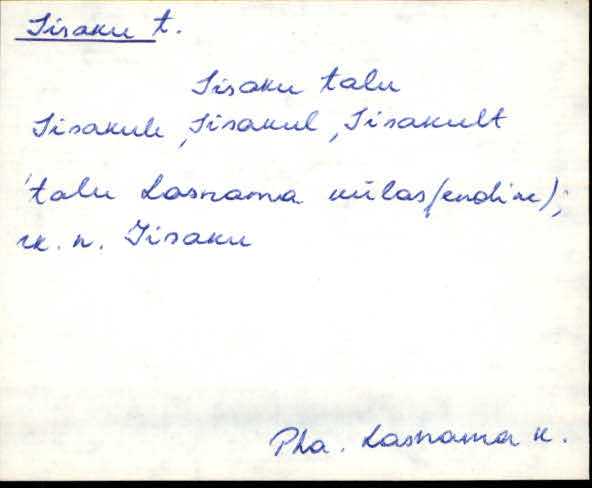 Iisaku t.
Iisaku talu
Iisakule, Iisakul, Iisakult
'talu Lasnama külas (endine);
rk. n. Iisaku
Pha. Lasnama k.